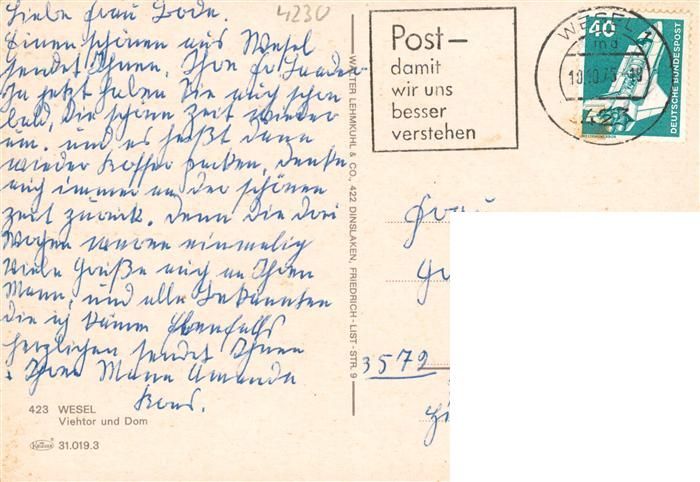 4230
Liebe Frau Bode.
Einen schönen aus Wesel
sendet Ihnen. Ihre
Ja jetzt haben Sie auch schon
bald, die schöne Zeit wieder
um. und es heißt dann
wieder Koffer packen, denke
auch immer an der schönen
Zeit zurück. denn die drei
Wochen waren einmalig
Viele Grüße auch an Ihren
Mann, und alle Bekannten
die ich kenne Ebenfalls
herzlichen sendet Ihnen
Ihre Amanda
423 WESEL
Viehtor und Dom
Krüger 31.019.3
WALTER LEHMKUHL & CO., 422 DINSLAKEN, FRIEDRICH-LIST-STR. 9
Post–
damit
wir uns
besser
verstehen
WESEL 1
md
10.10.75-18
423
40
DEUTSCHE BUNDESPOST
Frau
3579